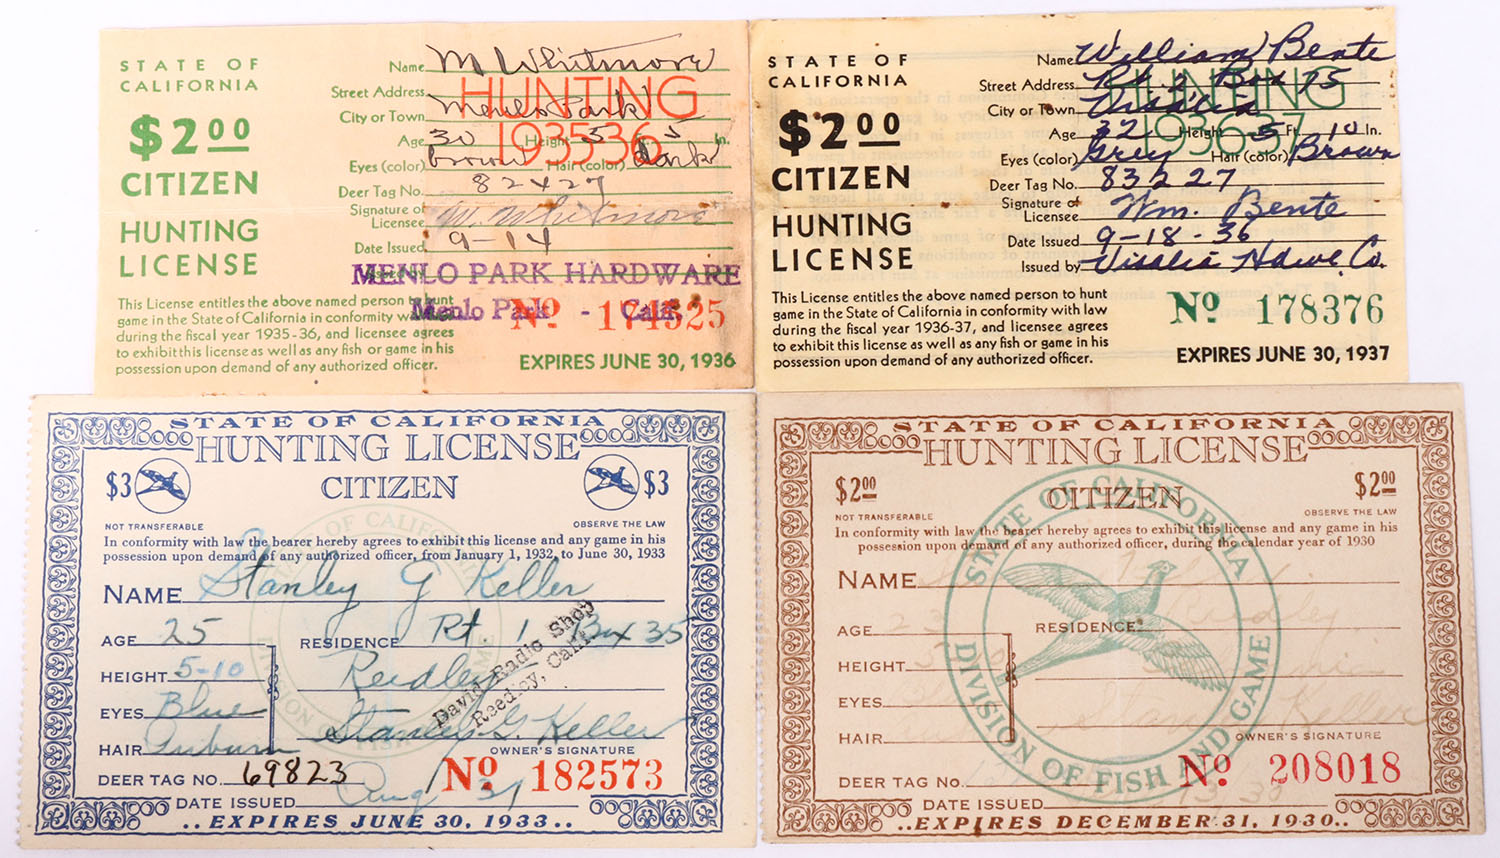 STATE OF
CALIFORNIA
$2.00
CITIZEN
HUNTING
LICENSE
HUNTING
1935 36
Name M Whitmore
Street Address
City or Town Menlo Park
Age 30 Height 5 5 In.
Eyes (color) brown Hair (color) dark
Deer Tag No. 82427
Signature of
Licensee M. Whitmore
Date Issued 9-14
Issued by
MENLO PARK HARDWARE
Menlo Park - Calif.
This License entitles the above named person to hunt
game in the State of California in conformity with law
during the fiscal year 1935-36, and licensee agrees
to exhibit this license as well as any fish or game in his
possession upon demand of any authorized officer.
No 174525
EXPIRES JUNE 30, 1936
STATE OF
CALIFORNIA
$2.00
CITIZEN
HUNTING
LICENSE
HUNTING
1936 37
Name William Bente
Street Address Rt. 2 Box 75
City or Town Visalia
Age 32 Height 5 Ft. 10 In.
Eyes (color) Grey Hair (color) Brown
Deer Tag No. 83227
Signature of
Licensee Wm. Bente
Date Issued 9-18-36
Issued by Visalia Hdwe Co.
This License entitles the above named person to hunt
game in the State of California in conformity with law
during the fiscal year 1936-37, and licensee agrees
to exhibit this license as well as any fish or game in his
possession upon demand of any authorized officer.
No 178376
EXPIRES JUNE 30, 1937
STATE OF CALIFORNIA
HUNTING LICENSE
$3 CITIZEN $3
NOT TRANSFERABLE OBSERVE THE LAW
In conformity with law the bearer hereby agrees to exhibit this license and any game in his
possession upon demand of any authorized officer, from January 1, 1932, to June 30, 1933
STATE OF CALIFORNIA
DIVISION OF FISH AND GAME
NAME Stanley G Keller
AGE 25 RESIDENCE Rt 1 Box 35
HEIGHT 5-10 Reedley
EYES Blue
HAIR Auburn Stanley G. Keller
OWNER'S SIGNATURE
David Radio Shop
Reedley, Calif.
DEER TAG NO. 69823 No 182573
DATE ISSUED Aug 31
..EXPIRES JUNE 30, 1933..
STATE OF CALIFORNIA
HUNTING LICENSE
$2.00 CITIZEN $2.00
NOT TRANSFERABLE OBSERVE THE LAW
In conformity with law the bearer hereby agrees to exhibit this license and any game in his
possession upon demand of any authorized officer, during the calendar year of 1930
STATE OF CALIFORNIA
DIVISION OF FISH AND GAME
NAME
AGE 23 RESIDENCE
HEIGHT
EYES
HAIR Keller
OWNER'S SIGNATURE
DEER TAG NO. No 208018
DATE ISSUED
..EXPIRES DECEMBER 31, 1930..